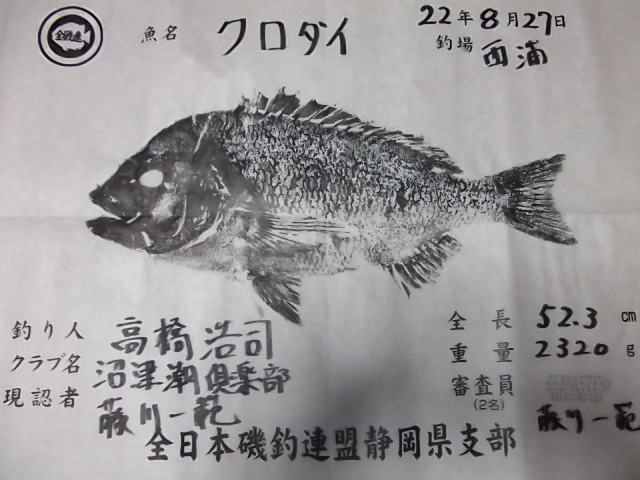 全磯連
魚名 クロダイ
22年8月27日
釣場 西浦
釣り人 高橋浩司
クラブ名 沼津潮倶楽部
現認者 藤川一範
全長 52.3 cm
重量 2320 g
審査員 藤川一範
(2名)
全日本磯釣連盟静岡県支部